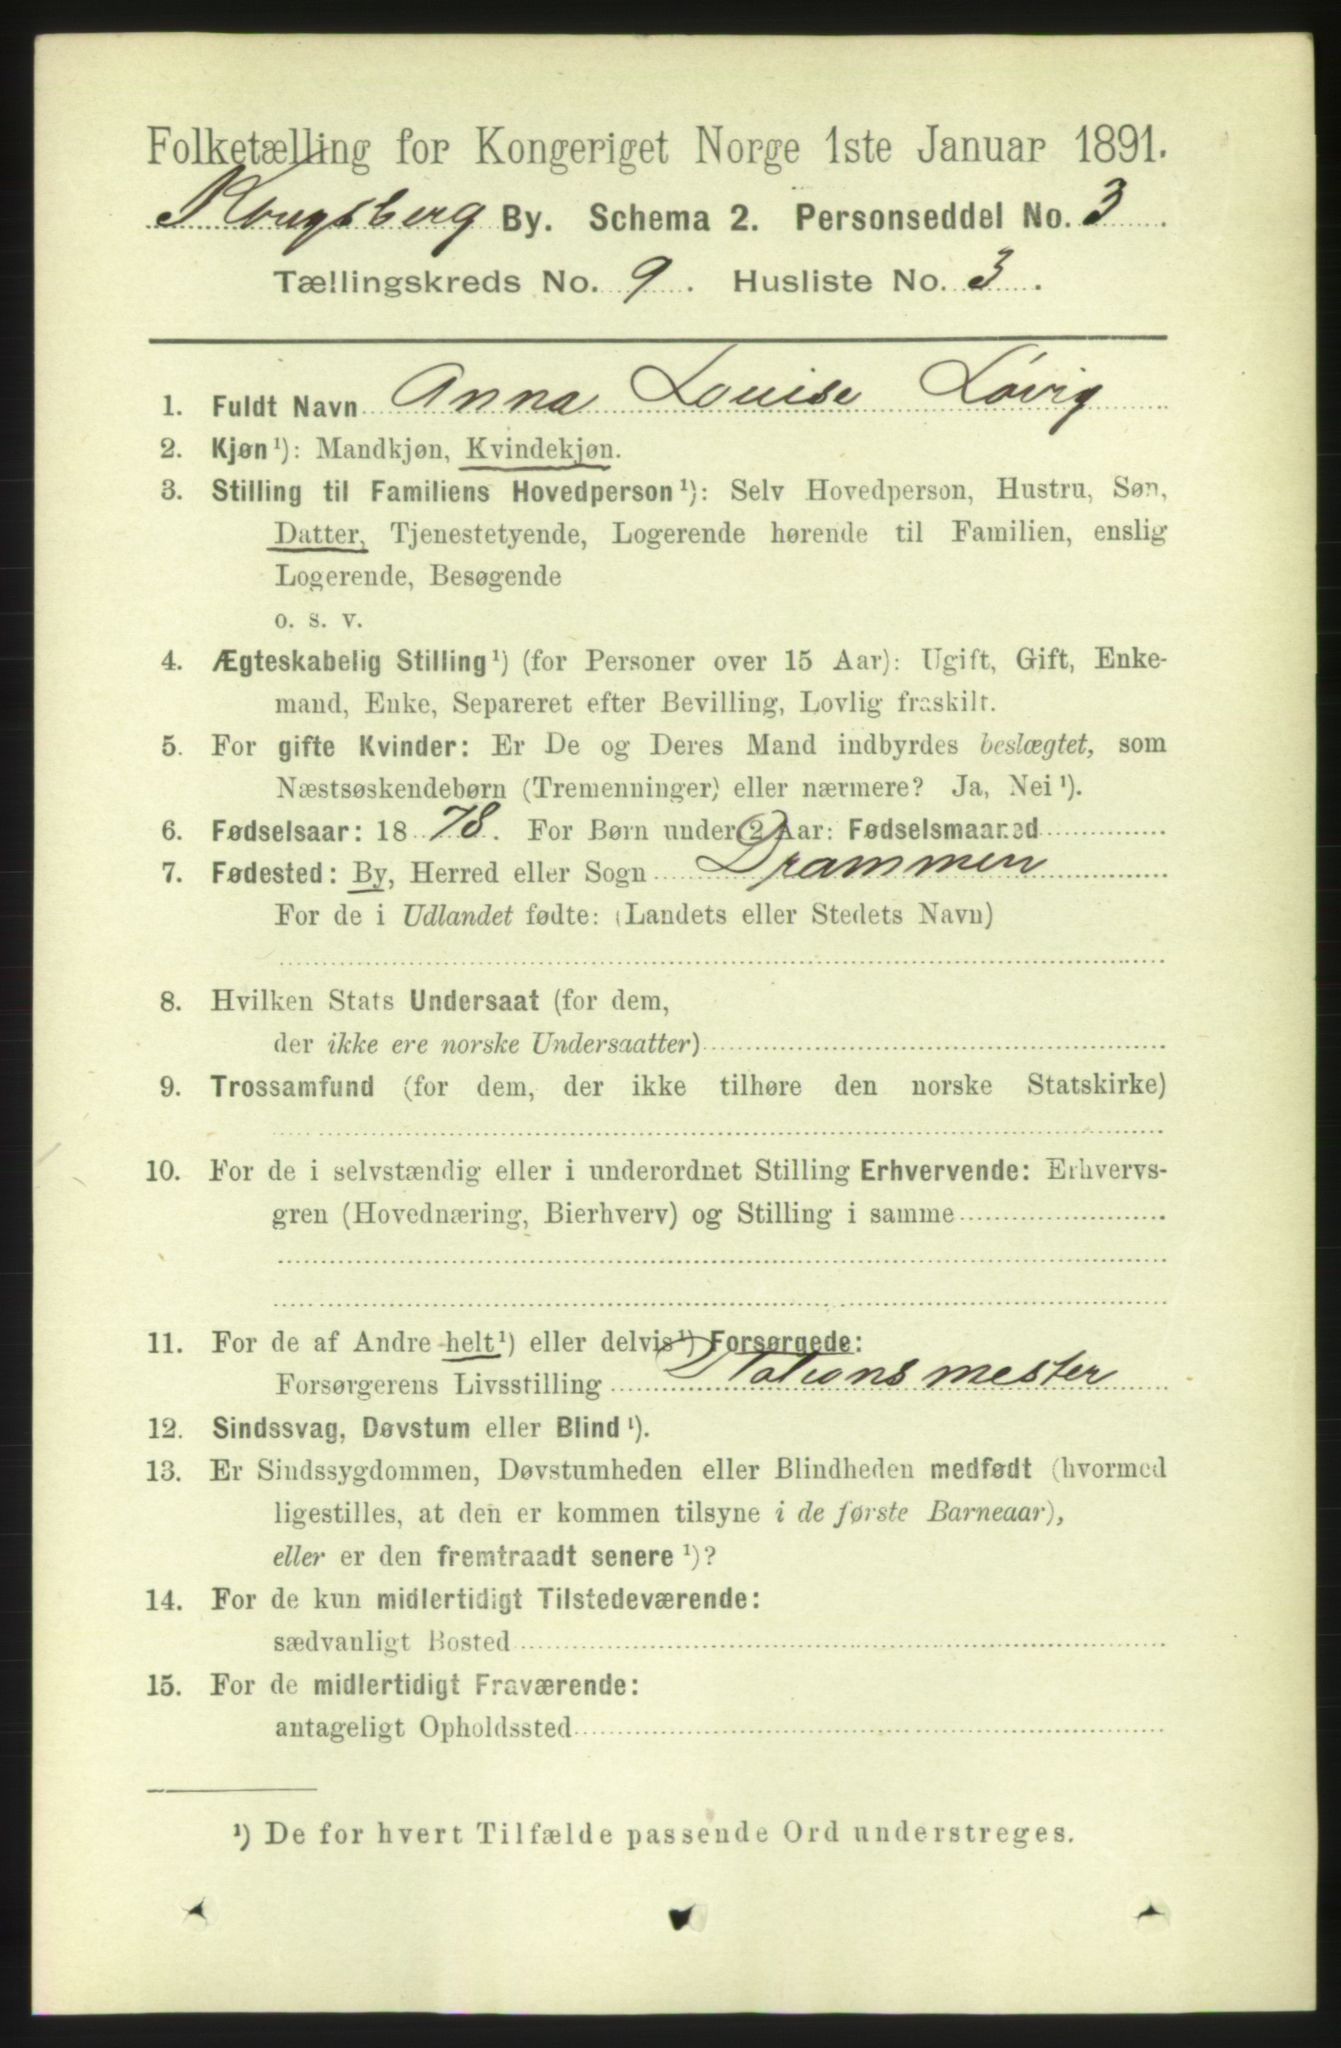 Folketælling for Kongeriget Norge 1ste Januar 1891.
Kongsberg By. Schema 2. Personseddel No. 3.
Tællingskreds No. 9. Husliste No. 3.
1. Fuldt Navn Anna Louise Løvig
2. Kjøn¹): Mandkjøn, Kvindekjøn.
3. Stilling til Familiens Hovedperson¹): Selv Hovedperson, Hustru, Søn,
Datter, Tjenestetyende, Logerende hørende til Familien, enslig
Logerende, Besøgende
o. s. v.
4. Ægteskabelig Stilling¹) (for Personer over 15 Aar): Ugift, Gift, Enke-
mand, Enke, Separeret efter Bevilling, Lovlig fraskilt.
5. For gifte Kvinder: Er De og Deres Mand indbyrdes beslægtet, som
Næstsøskendebørn (Tremenninger) eller nærmere? Ja, Nei¹).
6. Fødselsaar: 1878. For Børn under 2 Aar: Fødselsmaaned
7. Fødested: By, Herred eller Sogn Drammen
For de i Udlandet fødte: (Landets eller Stedets Navn)
8. Hvilken Stats Undersaat (for dem,
der ikke ere norske Undersaatter)
9. Trossamfund (for dem, der ikke tilhøre den norske Statskirke)
10. For de i selvstændig eller i underordnet Stilling Erhvervende: Erhvervs-
gren (Hovednæring, Bierhverv) og Stilling i samme
11. For de af Andre helt¹) eller delvis¹) Forsørgede:
Forsørgerens Livsstilling Stationsmester
12. Sindssvag, Døvstum eller Blind¹).
13. Er Sindssygdommen, Døvstumheden eller Blindheden medfødt (hvormed
ligestilles, at den er kommen tilsyne i de første Barneaar),
eller er den fremtraadt senere¹)?
14. For de kun midlertidigt Tilstedeværende:
sædvanligt Bosted
15. For de midlertidigt Fraværende:
antageligt Opholdssted
¹) De for hvert Tilfælde passende Ord understreges.